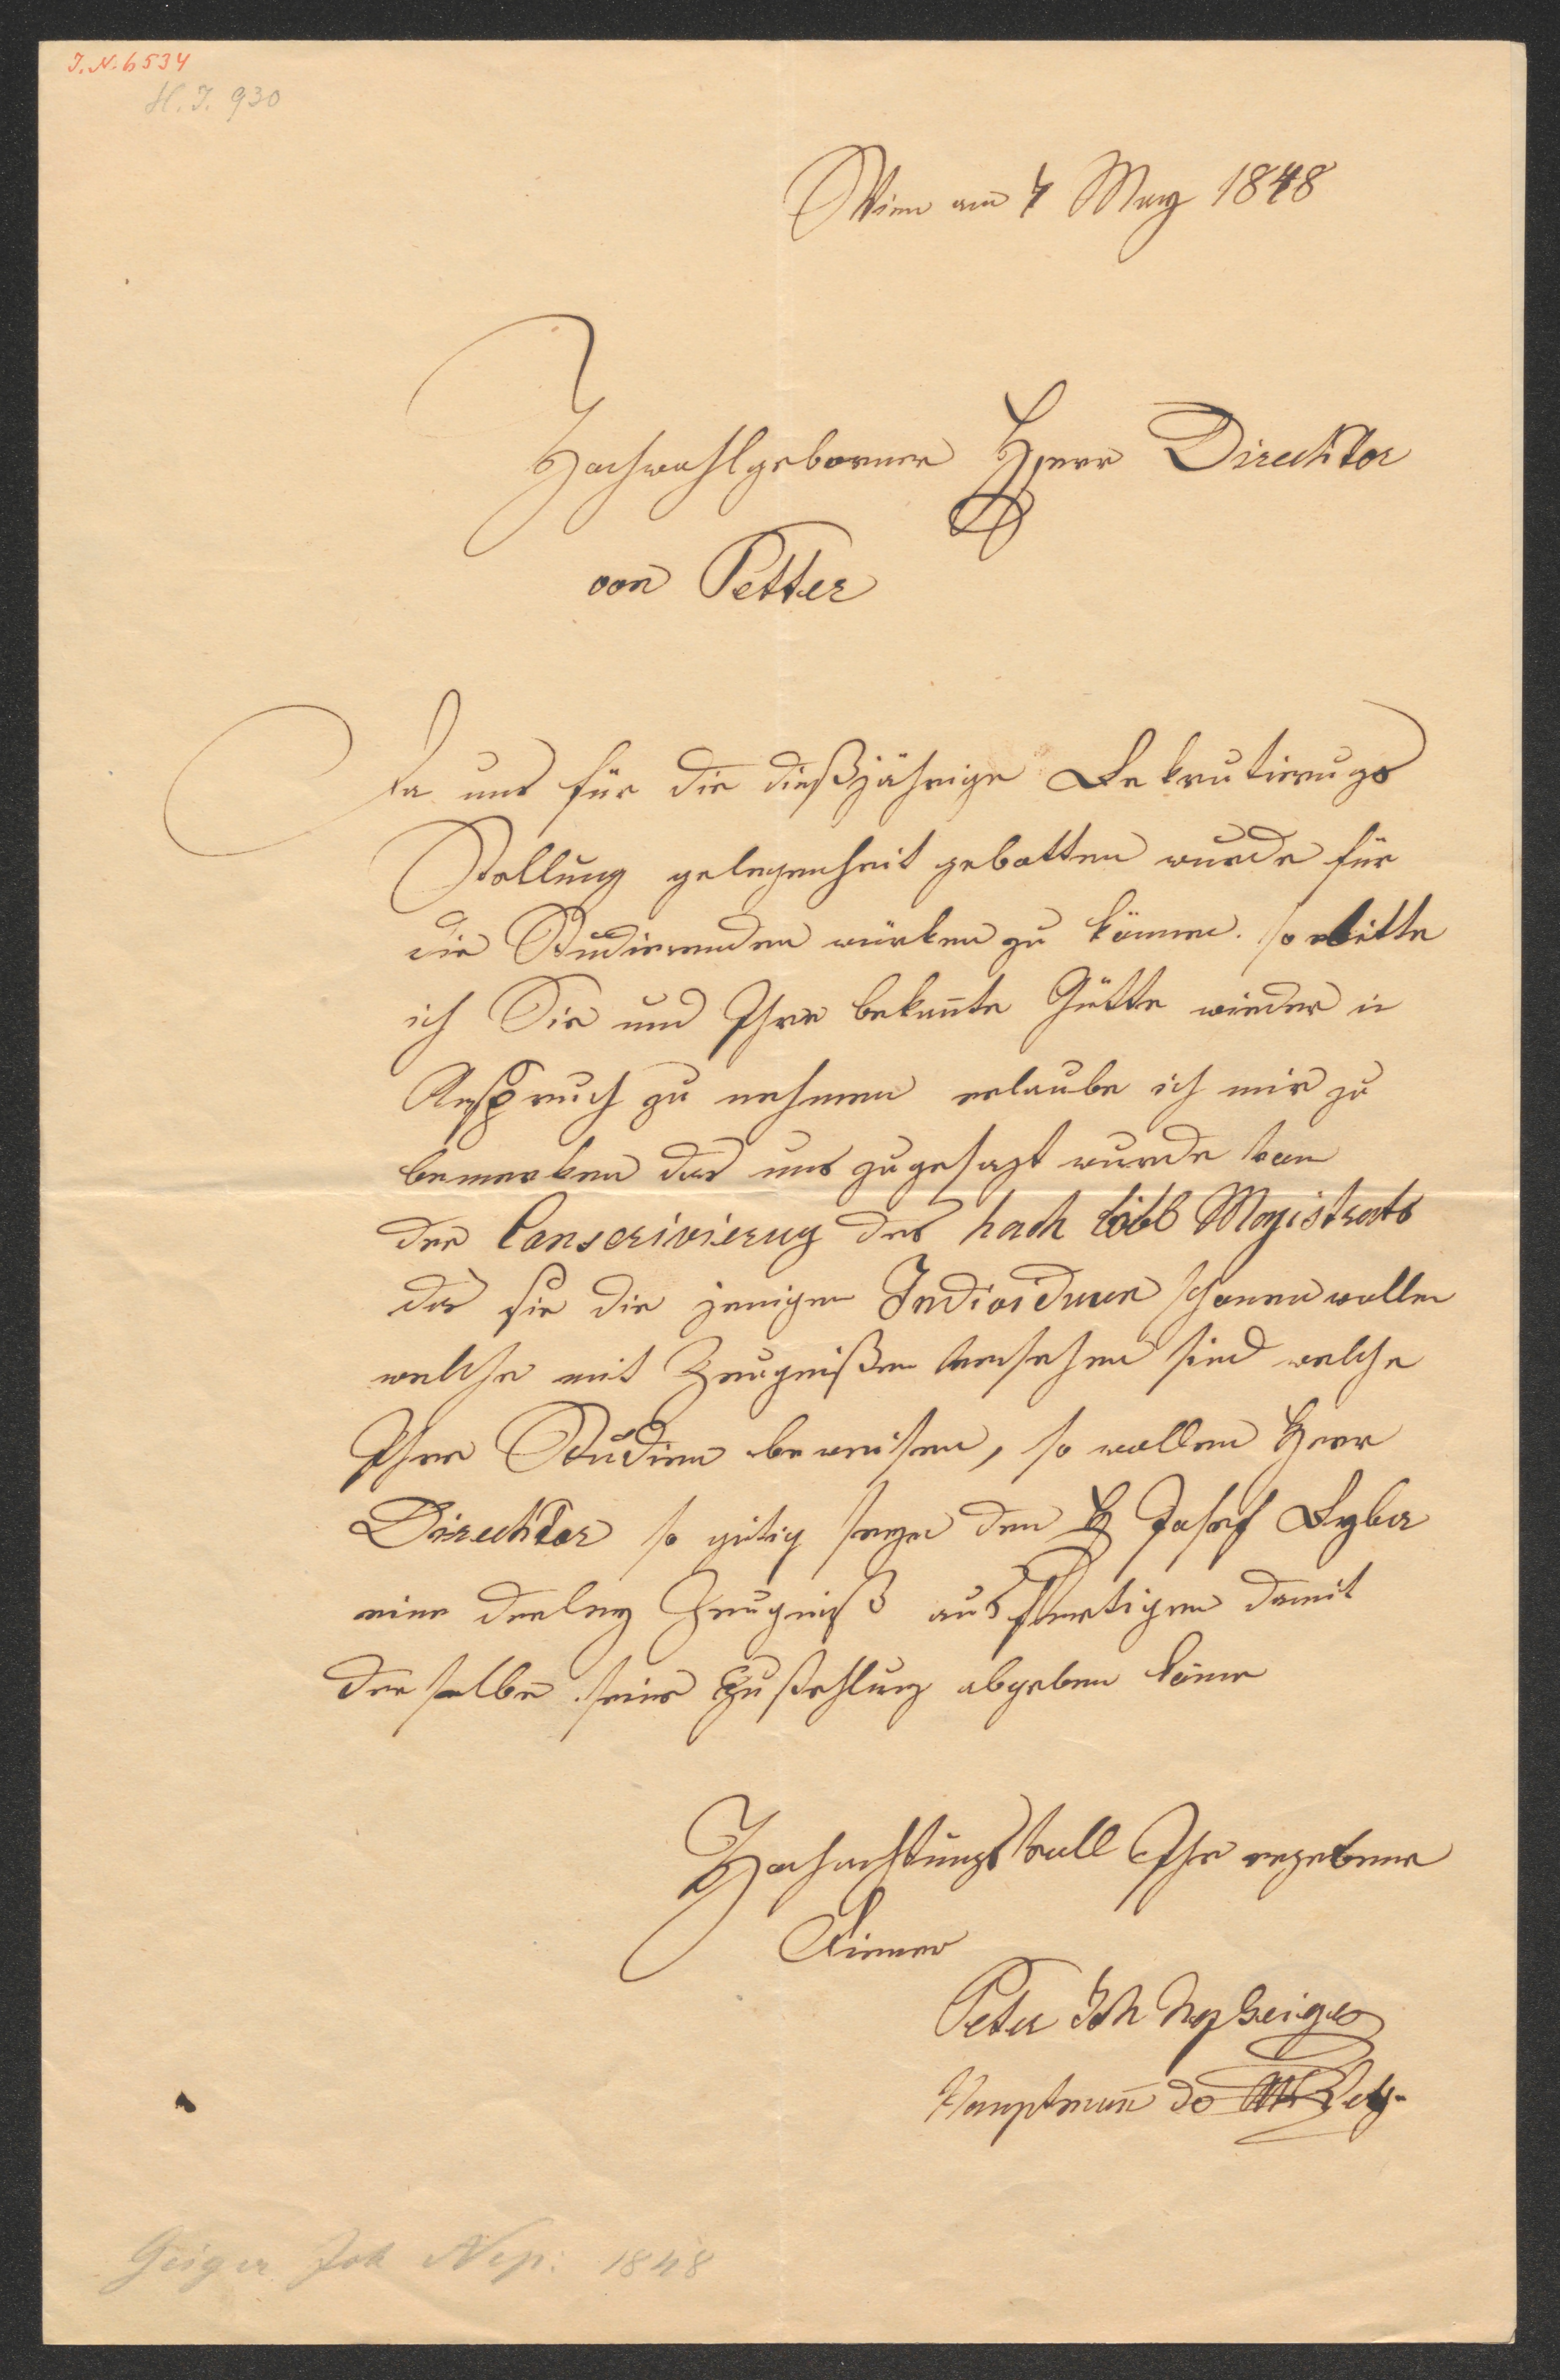 I.N. 6534
H.I. 930
Wien am 4 May 1848
Hochwohlgeborner Herr Direcktor
von Petter
Da uns für die dießjährige Rekrutierugs
Stellung gelegenheit gebotten wurde für
die Studierenden würken zu können. so bitte
ich Sie und Ihre bekan̄te Gütte wieder in
Anspruch zu nehmen erlaube ich mir zu
bemerken das uns zugesagt wurde von
der Conscrivierug des hoch löbl Magistrats
das sie die jenigen Individuen schonen wollen
welche mit Zeugnißen versehen sind welche
Ihre Studien beweisen, so wollen Herr
Direcktor so gütig seyn den H Josef
eine derley Zeugniß ausfertigen damit
der selbe seine abgeben köne
Hochachtungsvoll Ihr ergebener
Diener
Peter Joh Nep Geiger
Hauptman̄ de
Geiger Joh Nep: 1848